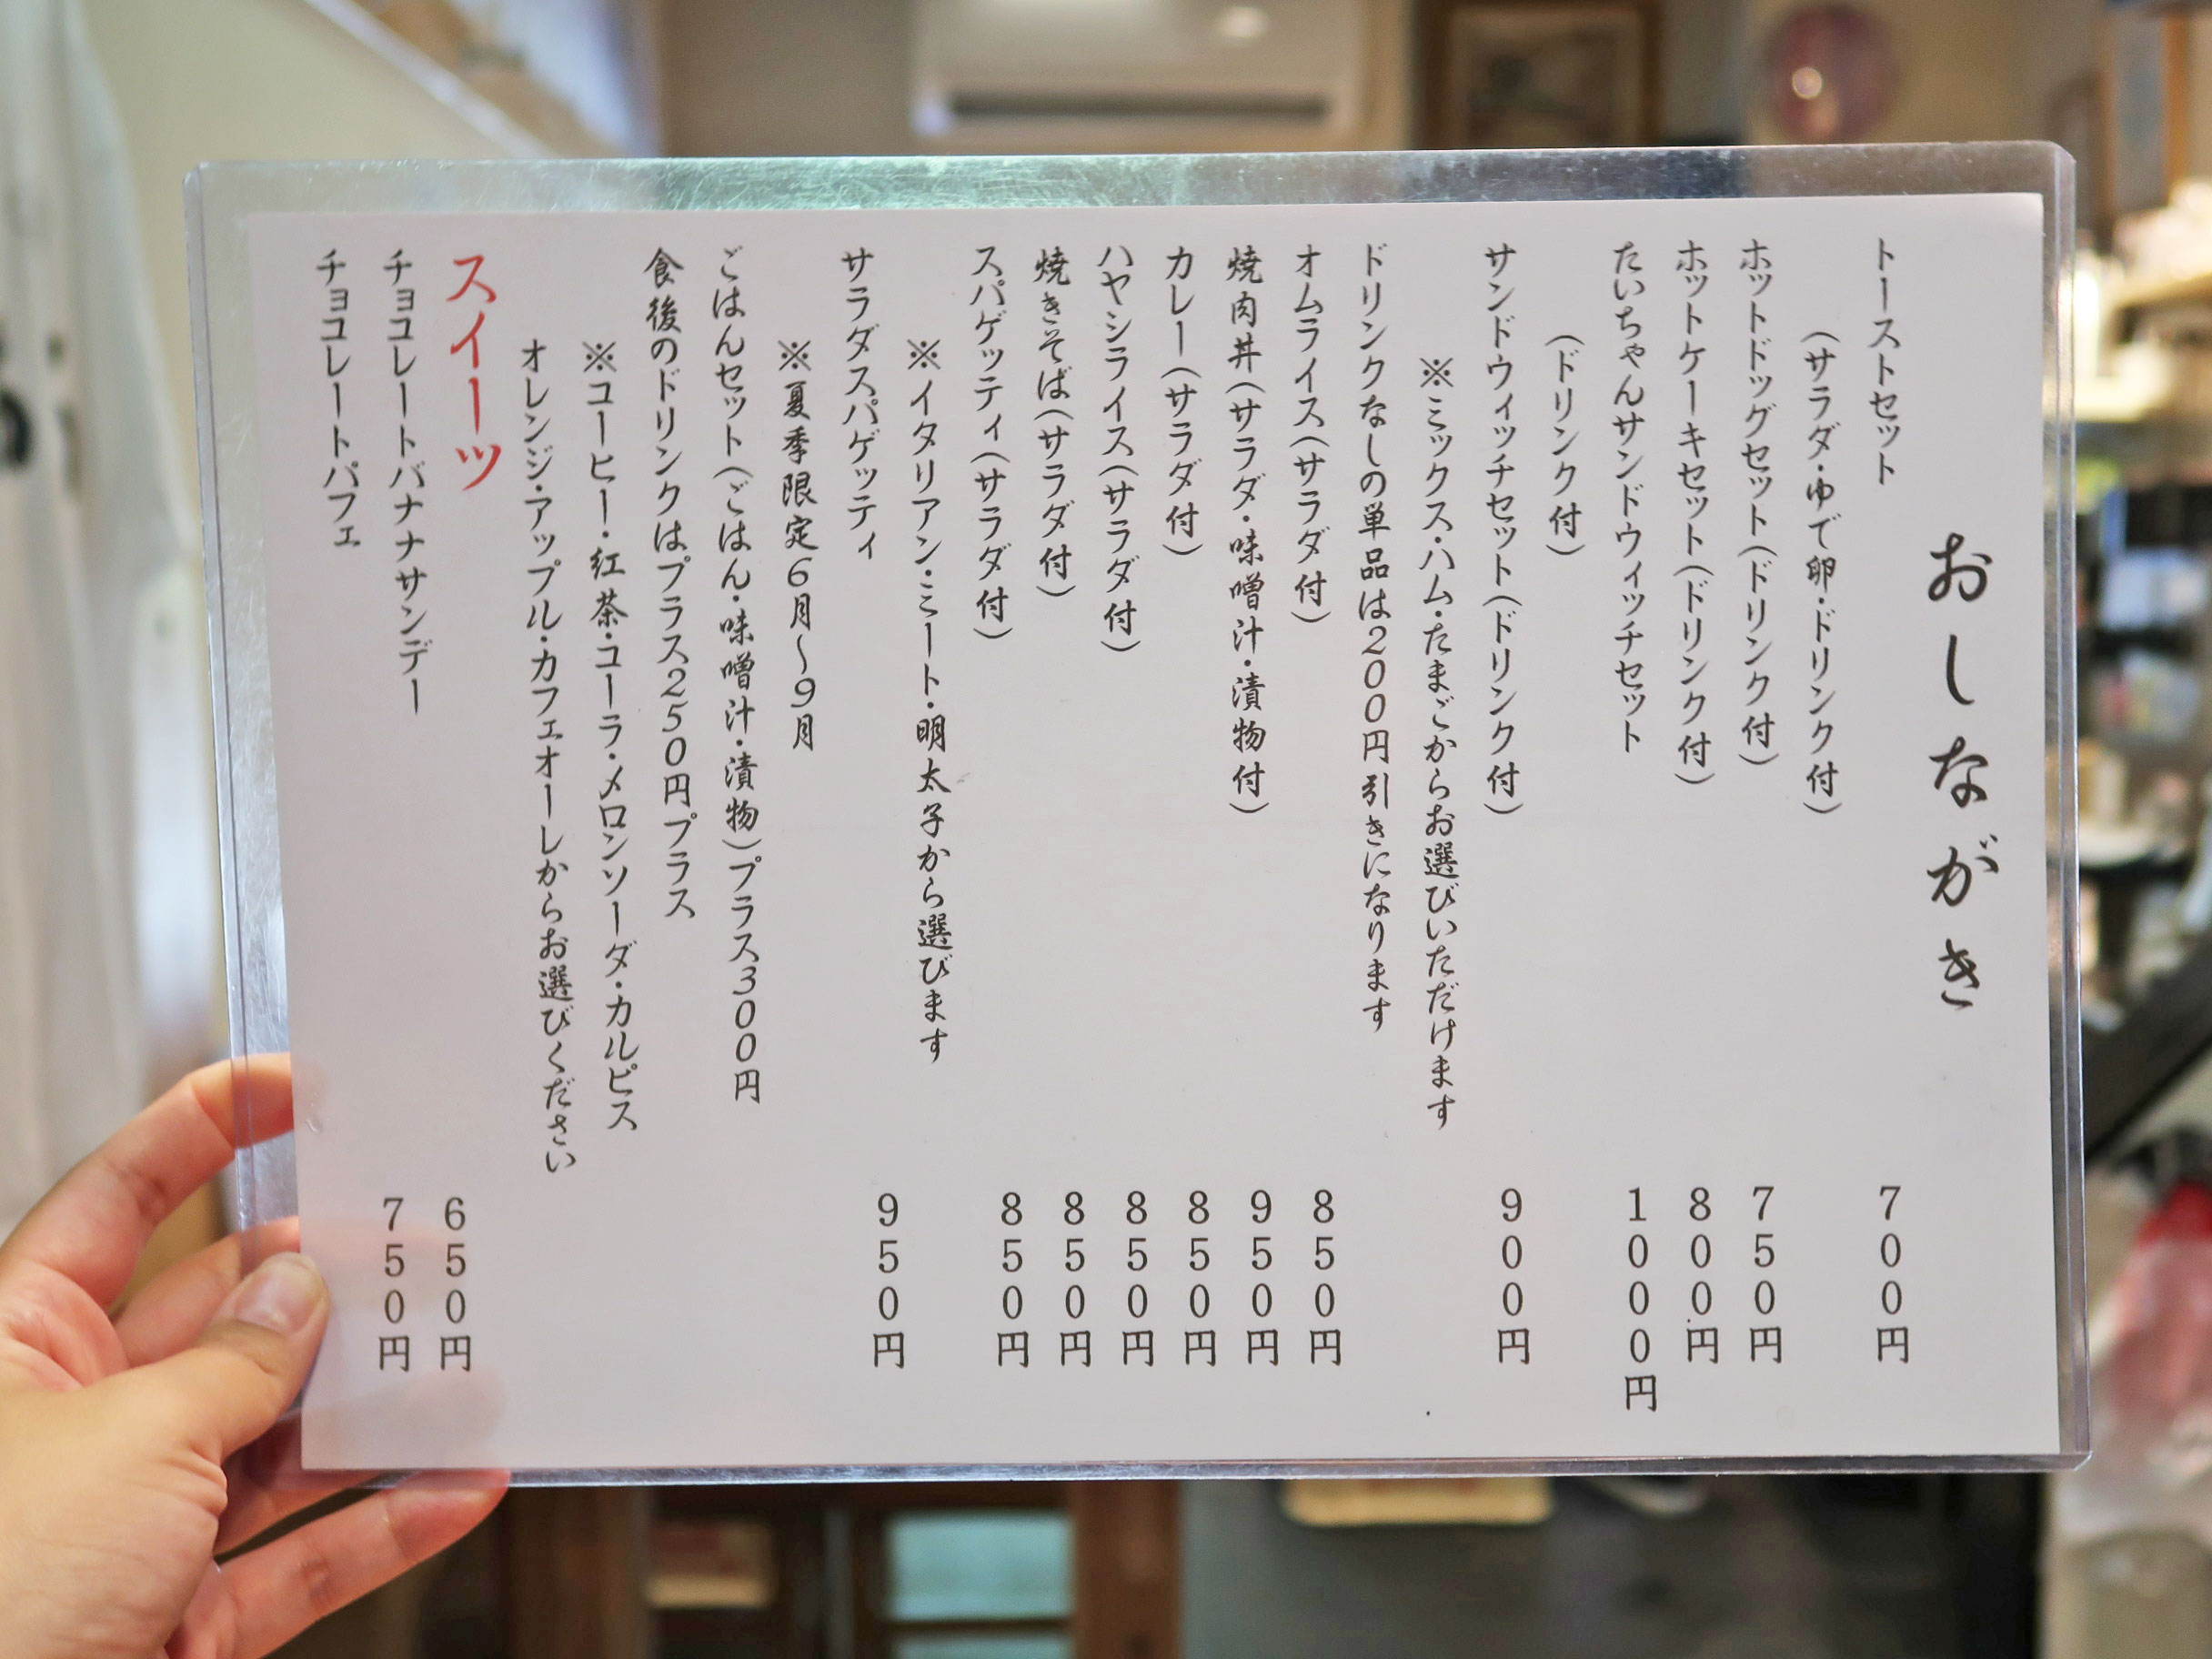 おしながき
トーストセット 700円
(サラダ・ゆで卵・ドリンク付)
ホットドッグセット(ドリンク付) 750円
ホットケーキセット(ドリンク付) 800円
たいちゃんサンドウィッチセット 1000円
(ドリンク付)
サンドウィッチセット(ドリンク付) 900円
※ミックス・ハム・たまごからお選びいただけます
ドリンクなしの単品は200円引きになります
オムライス(サラダ付) 850円
焼肉丼(サラダ・味噌汁・漬物付) 950円
カレー(サラダ付) 850円
ハヤシライス(サラダ付) 850円
焼きそば(サラダ付) 850円
スパゲッティ(サラダ付) 850円
※イタリアン・ミート・明太子から選びます
サラダスパゲッティ 950円
※夏季限定6月〜9月
ごはんセット(ごはん・味噌汁・漬物)プラス300円
食後のドリンクはプラス250円プラス
※コーヒー・紅茶・コーラ・メロンソーダ・カルピス
オレンジ・アップル・カフェオーレからお選びください
スイーツ
チョコレートバナナサンデー 650円
チョコレートパフェ 750円